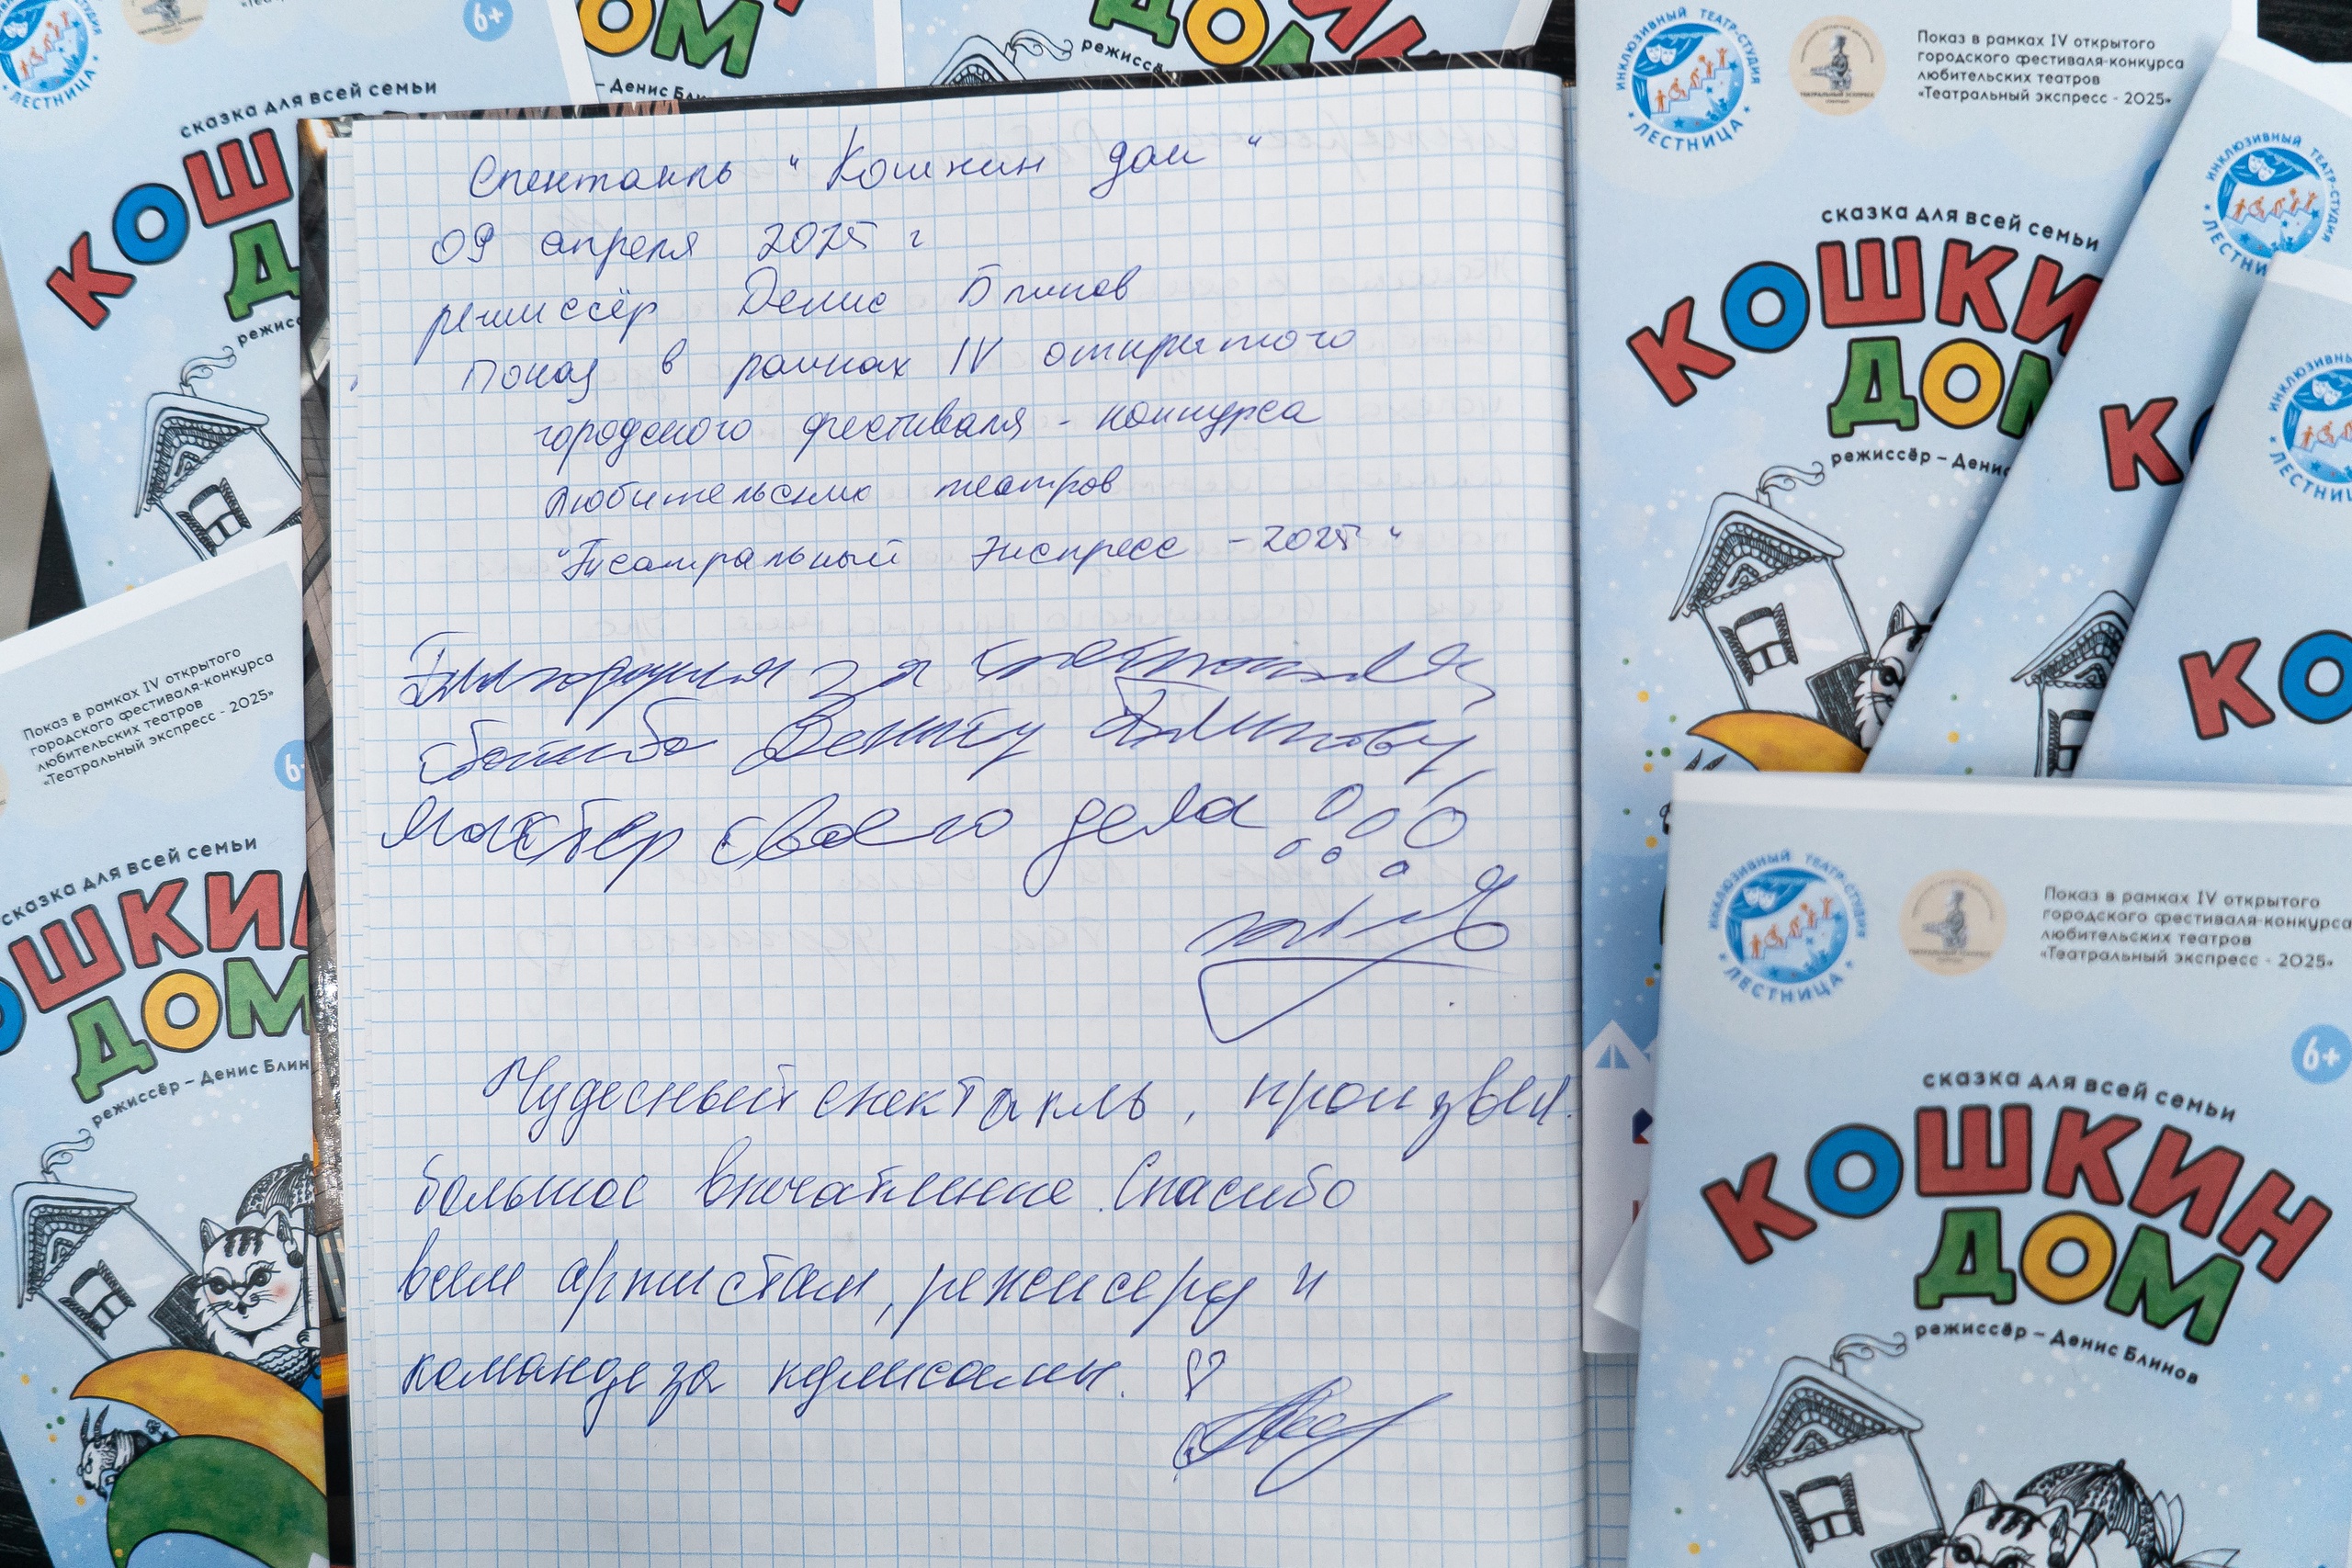 6+
сказка для всей семьи
КОШ
Д
режисс
ЛЕСТНИЦА
ОМ
– Денис Бли
КИН
ДОМ
режиссё
Спектакль "Кошкин дом"
09 апреля 2025 г
режиссёр Денис Блинов
Показ в рамках IV открытого
городского фестиваля - конкурса
любительских театров
"Театральный экспресс - 2025"
Благодарим за
спасибо Денису Блинову,
Мастер своего дела !!!
Чудесный спектакль, произвел
большое впечатление. Спасибо
всем артистам, режисеру и
команде за кулисами.
Показ в рамках IV открытого
городского фестиваля-конкурса
любительских театров
«Театральный экспресс - 2025»
6
сказка для всей семьи
ОШКИН
ДОМ
режиссёр – Денис Блин
ИНКЛЮЗИВНЫЙ ТЕАТР-СТУДИЯ
ЛЕСТНИЦА
ТЕАТРАЛЬНЫЙ ЭКСПРЕСС
Показ в рамках IV открытого
городского фестиваля-конкурса
любительских театров
«Театральный экспресс - 2025»
сказка для всей семьи
КОШКИ
ДОМ
режиссёр – Денис
ИНКЛЮЗИВНЫЙ ТЕАТР-СТУДИЯ
ЛЕСТНИ
К
ИНКЛЮЗИВНЫЙ
ЛЕСТНИЦ
КО
ИНКЛЮЗИВНЫЙ ТЕАТР-СТУДИЯ
ЛЕСТНИЦА
Показ в рамках IV открытого
городского фестиваля-конкурса
любительских театров
«Театральный экспресс - 2025»
6+
сказка для всей семьи
КОШКИН
ДОМ
режиссёр – Денис Блинов